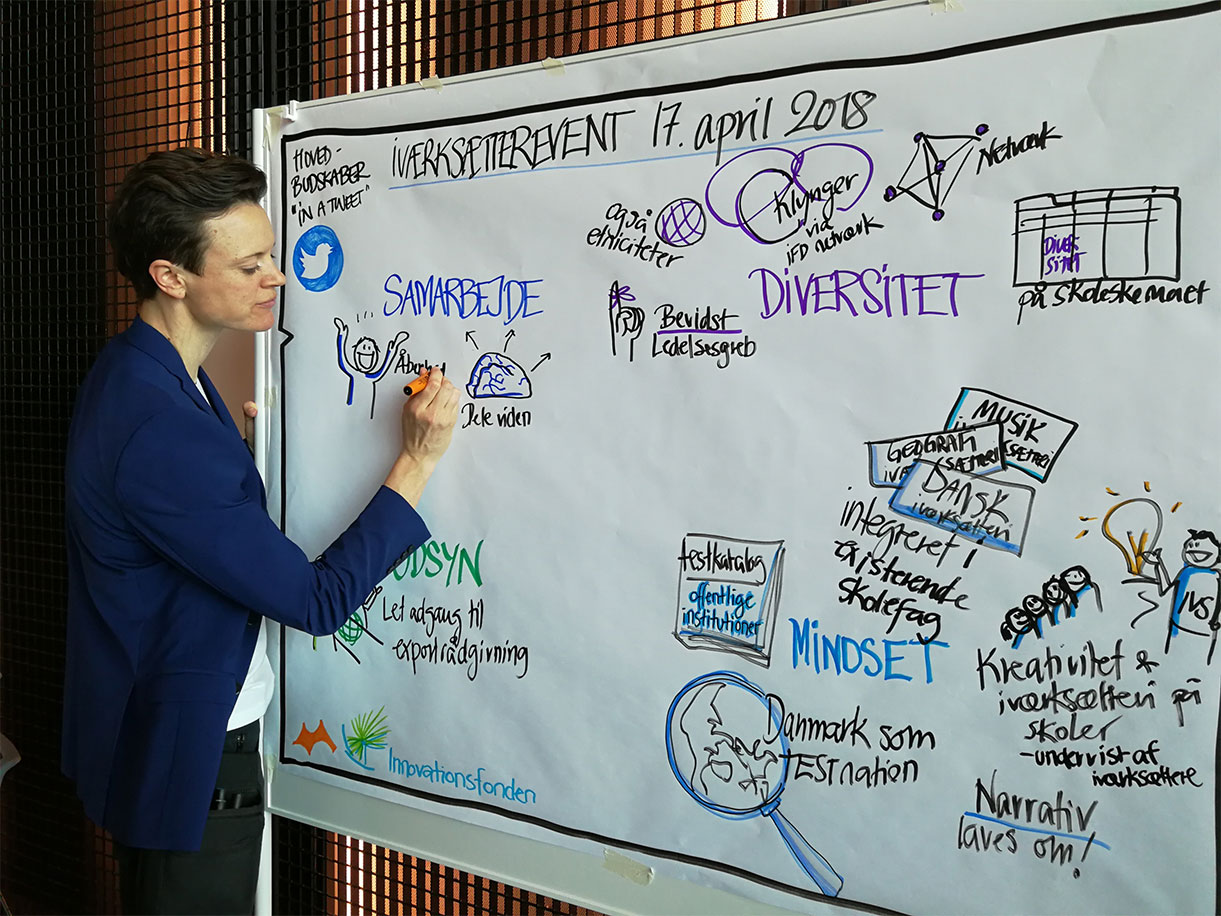 HOVED-
BUDSKABER
"IN A TWEET"
IVÆRKSÆTTEREVENT 17. april 2018
SAMARBEJDE
Dele viden
også
etniciteter
Klynger
via
IFD netværk
Netværk
DIVERSITET
Bevidst
Ledelsesgreb
DIVER
SITET
på skoleskemaet
UDSYN
Let adgang til
exportrådgivning
Innovationsfonden
MUSIK
GEOGRAFI
DANSK
iværksætteri
integreret i
existerende
skolefag
testkatalog
offentlige
institutioner
MINDSET
Danmark som
TESTnation
IVS
Kreativitet &
iværksætteri på
skoler
- undervist af
iværksættere
Narrativ
laves om!